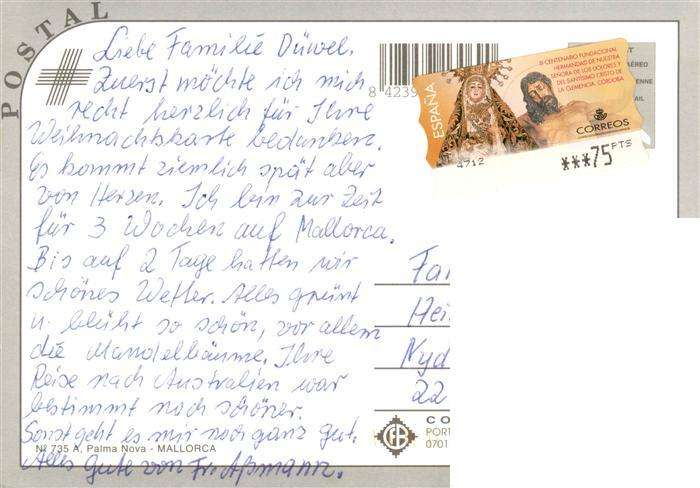 POSTAL
Liebe Familie Düwel.
Zuerst möchte ich mich
recht herzlich für Ihre
Weihnachtskarte bedanken.
Es kommt ziemlich spät aber
von Herzen. Ich bin zur Zeit
für 3 Wochen auf Mallorca.
Bis auf 2 Tage hatten wir
schönes Wetter. Alles grünt
u. blüht so schön, vor allem
die Mandelbäume. Ihre
Reise nach Australien war
bestimmt noch schöner.
Sonst geht es mir noch ganz gut.
Alles Gute von Fr. Aßmann.
Nº 735 A, Palma Nova - MALLORCA
8 4239
ESPAÑA
III CENTENARIO FUNDACIONAL
HERMANDAD DE NUESTRA
SEÑORA DE LOS DOLORES Y
DEL SANTISIMO CRISTO DE
LA CLEMENCIA. CORDOBA
CORREOS
4712
***75 PTS
AÉREO
ENNE
AIL
Fa
Hei
Nyd
22
CO
POR
0701